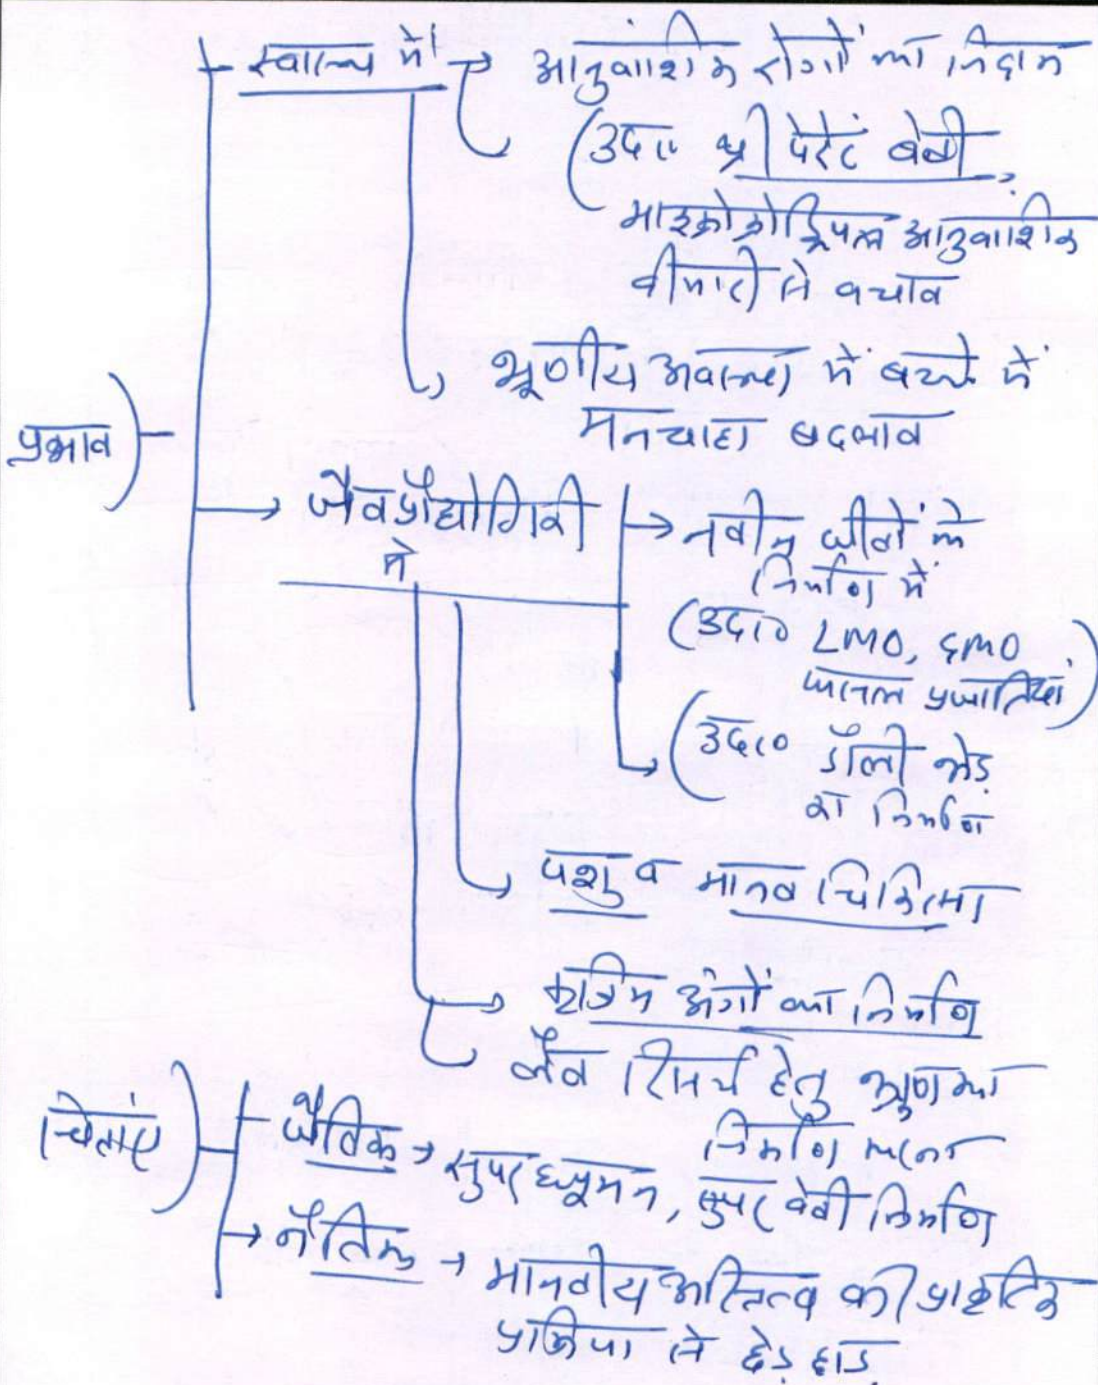 स्वास्थ्य में → आनुवांशिक रोगों का निदान
(उदा० थ्री पेरेंट बेबी
माइक्रोकोंड्रियल आनुवांशिक
बीमारी से बचाव
भ्रूणीय अवस्था में बच्चे में
मनचाहा बदलाव
प्रभाव
जैवप्रौद्योगिकी
में
नवीन जीवों के
निर्माण में
(उदा० LMO, GMO
फसल प्रजातियां)
(उदा० डॉली भेड़
का निर्माण
पशु व मानव चिकित्सा
कृत्रिम अंगों का निर्माण
जैव रिसर्च हेतु भ्रूण का
निर्माण करना
चिंताएं
जैविक → सुपर ह्यूमन, सुपर बेबी निर्माण
नैतिक → मानवीय अस्तित्व की प्राकृतिक
प्रक्रिया से छेड़छाड़